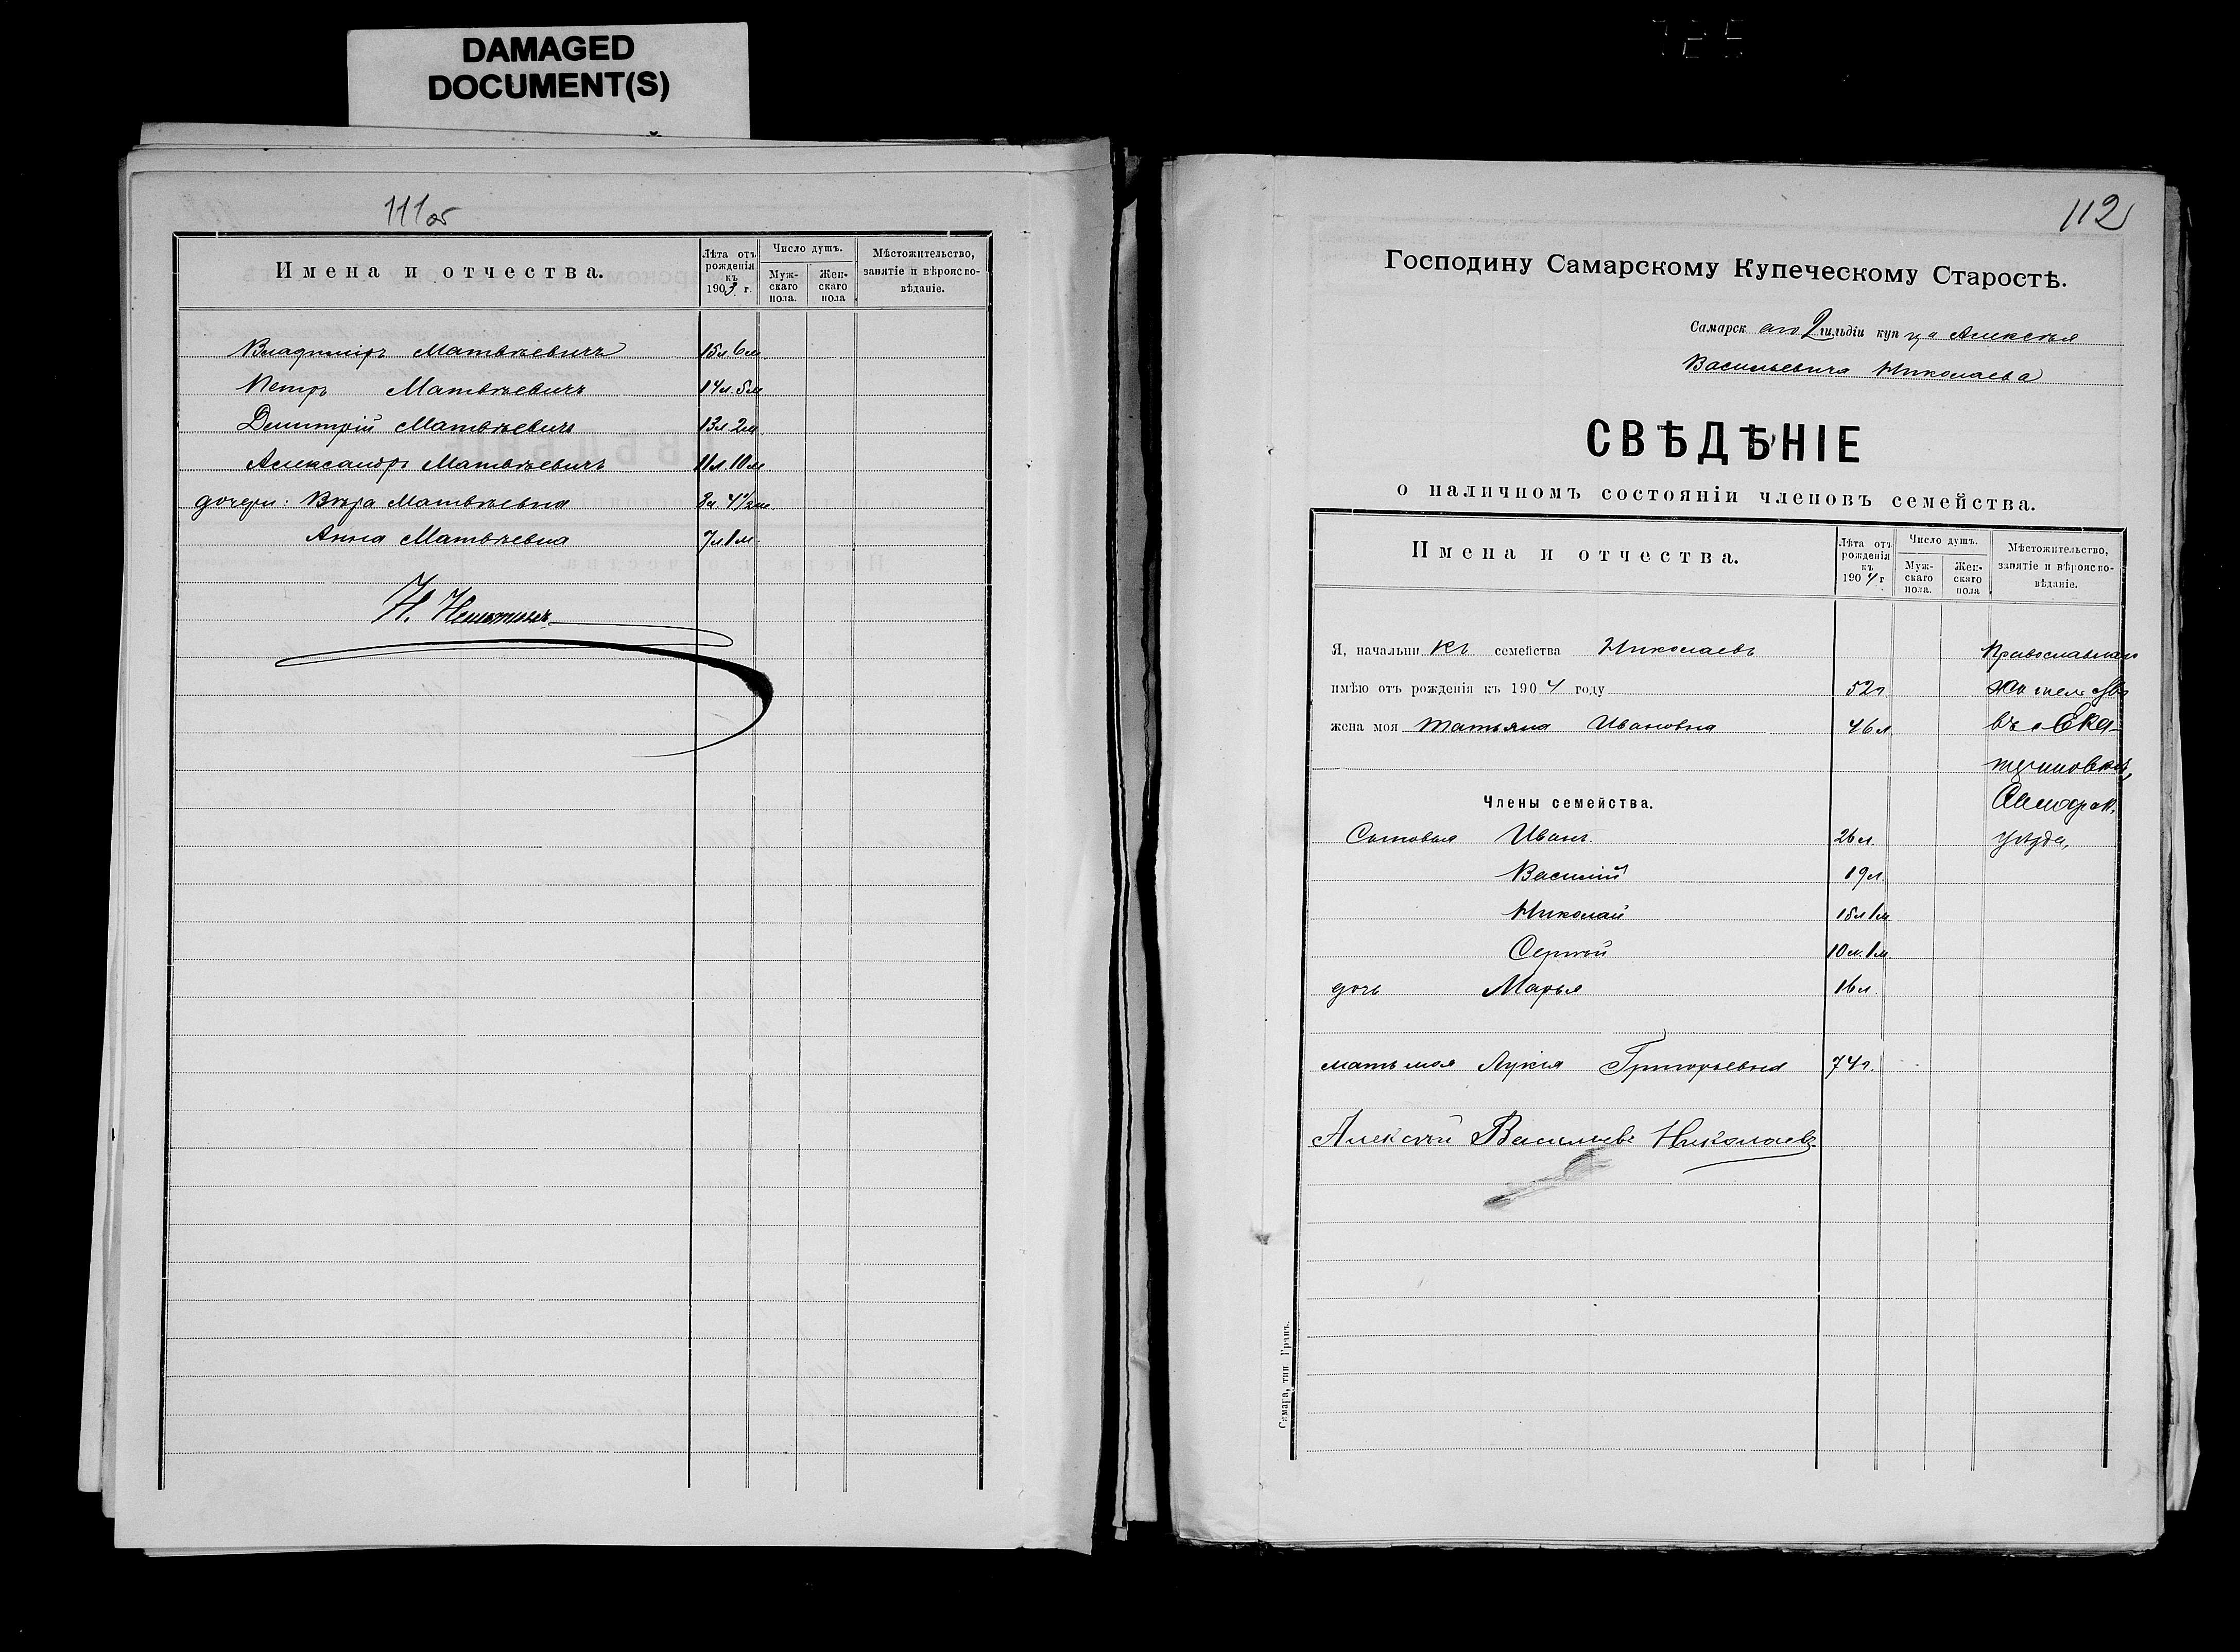 DAMAGED
DOCUMENT(S)
111об
Имена и отчества.
Лѣта отъ рожденія къ 1903 г.
Число душъ.
Муж-скаго пола.
Жен-скаго пола
Мѣстожительство, занятіе и вѣроиспо-вѣданіе.
Владиміръ Матвѣевичъ 15л 6м
Петръ Матвѣевичъ 14л. 5м
Димитрій Матвѣевичъ 13л 2м
Александръ Матвѣевичъ 11л 10м
дочери: Вѣра Матвѣевна 8л 4½м.
Анна Матвѣевна 7л 1м.
Н.
112
Господину Самарскому Купеческому Старостѣ.
Самарск аго 2 гильдіи куп ца Алексѣя
Васильевича Николаева
СВѢДѢНІЕ
о наличномъ состояніи членовъ семейства.
Имена и отчества.
Лѣта отъ рожденія къ 1904 г
Число душъ.
Муж-скаго пола.
Жен-скаго пола
Мѣстожительство, занятіе и вѣроиспо-вѣданіе.
Я, начальни къ семейства Николаевъ Православнаго
имѣю отъ рожденія къ 1904 году 52л
жена моя Татьяна Ивановна 46л въ с Ека-
териновкѣ,
Члены семейства. Самарск.
Сыновья Иванъ 26л. уѣзда,
Василій 19л.
Николай 15л 1м
Сергѣй 10л. 1м.
дочь Марья 16л.
мать моя Лукія Григорьевна 74л.
Алексѣй Васильевъ Николаевъ
Самара, тип. Гранъ.